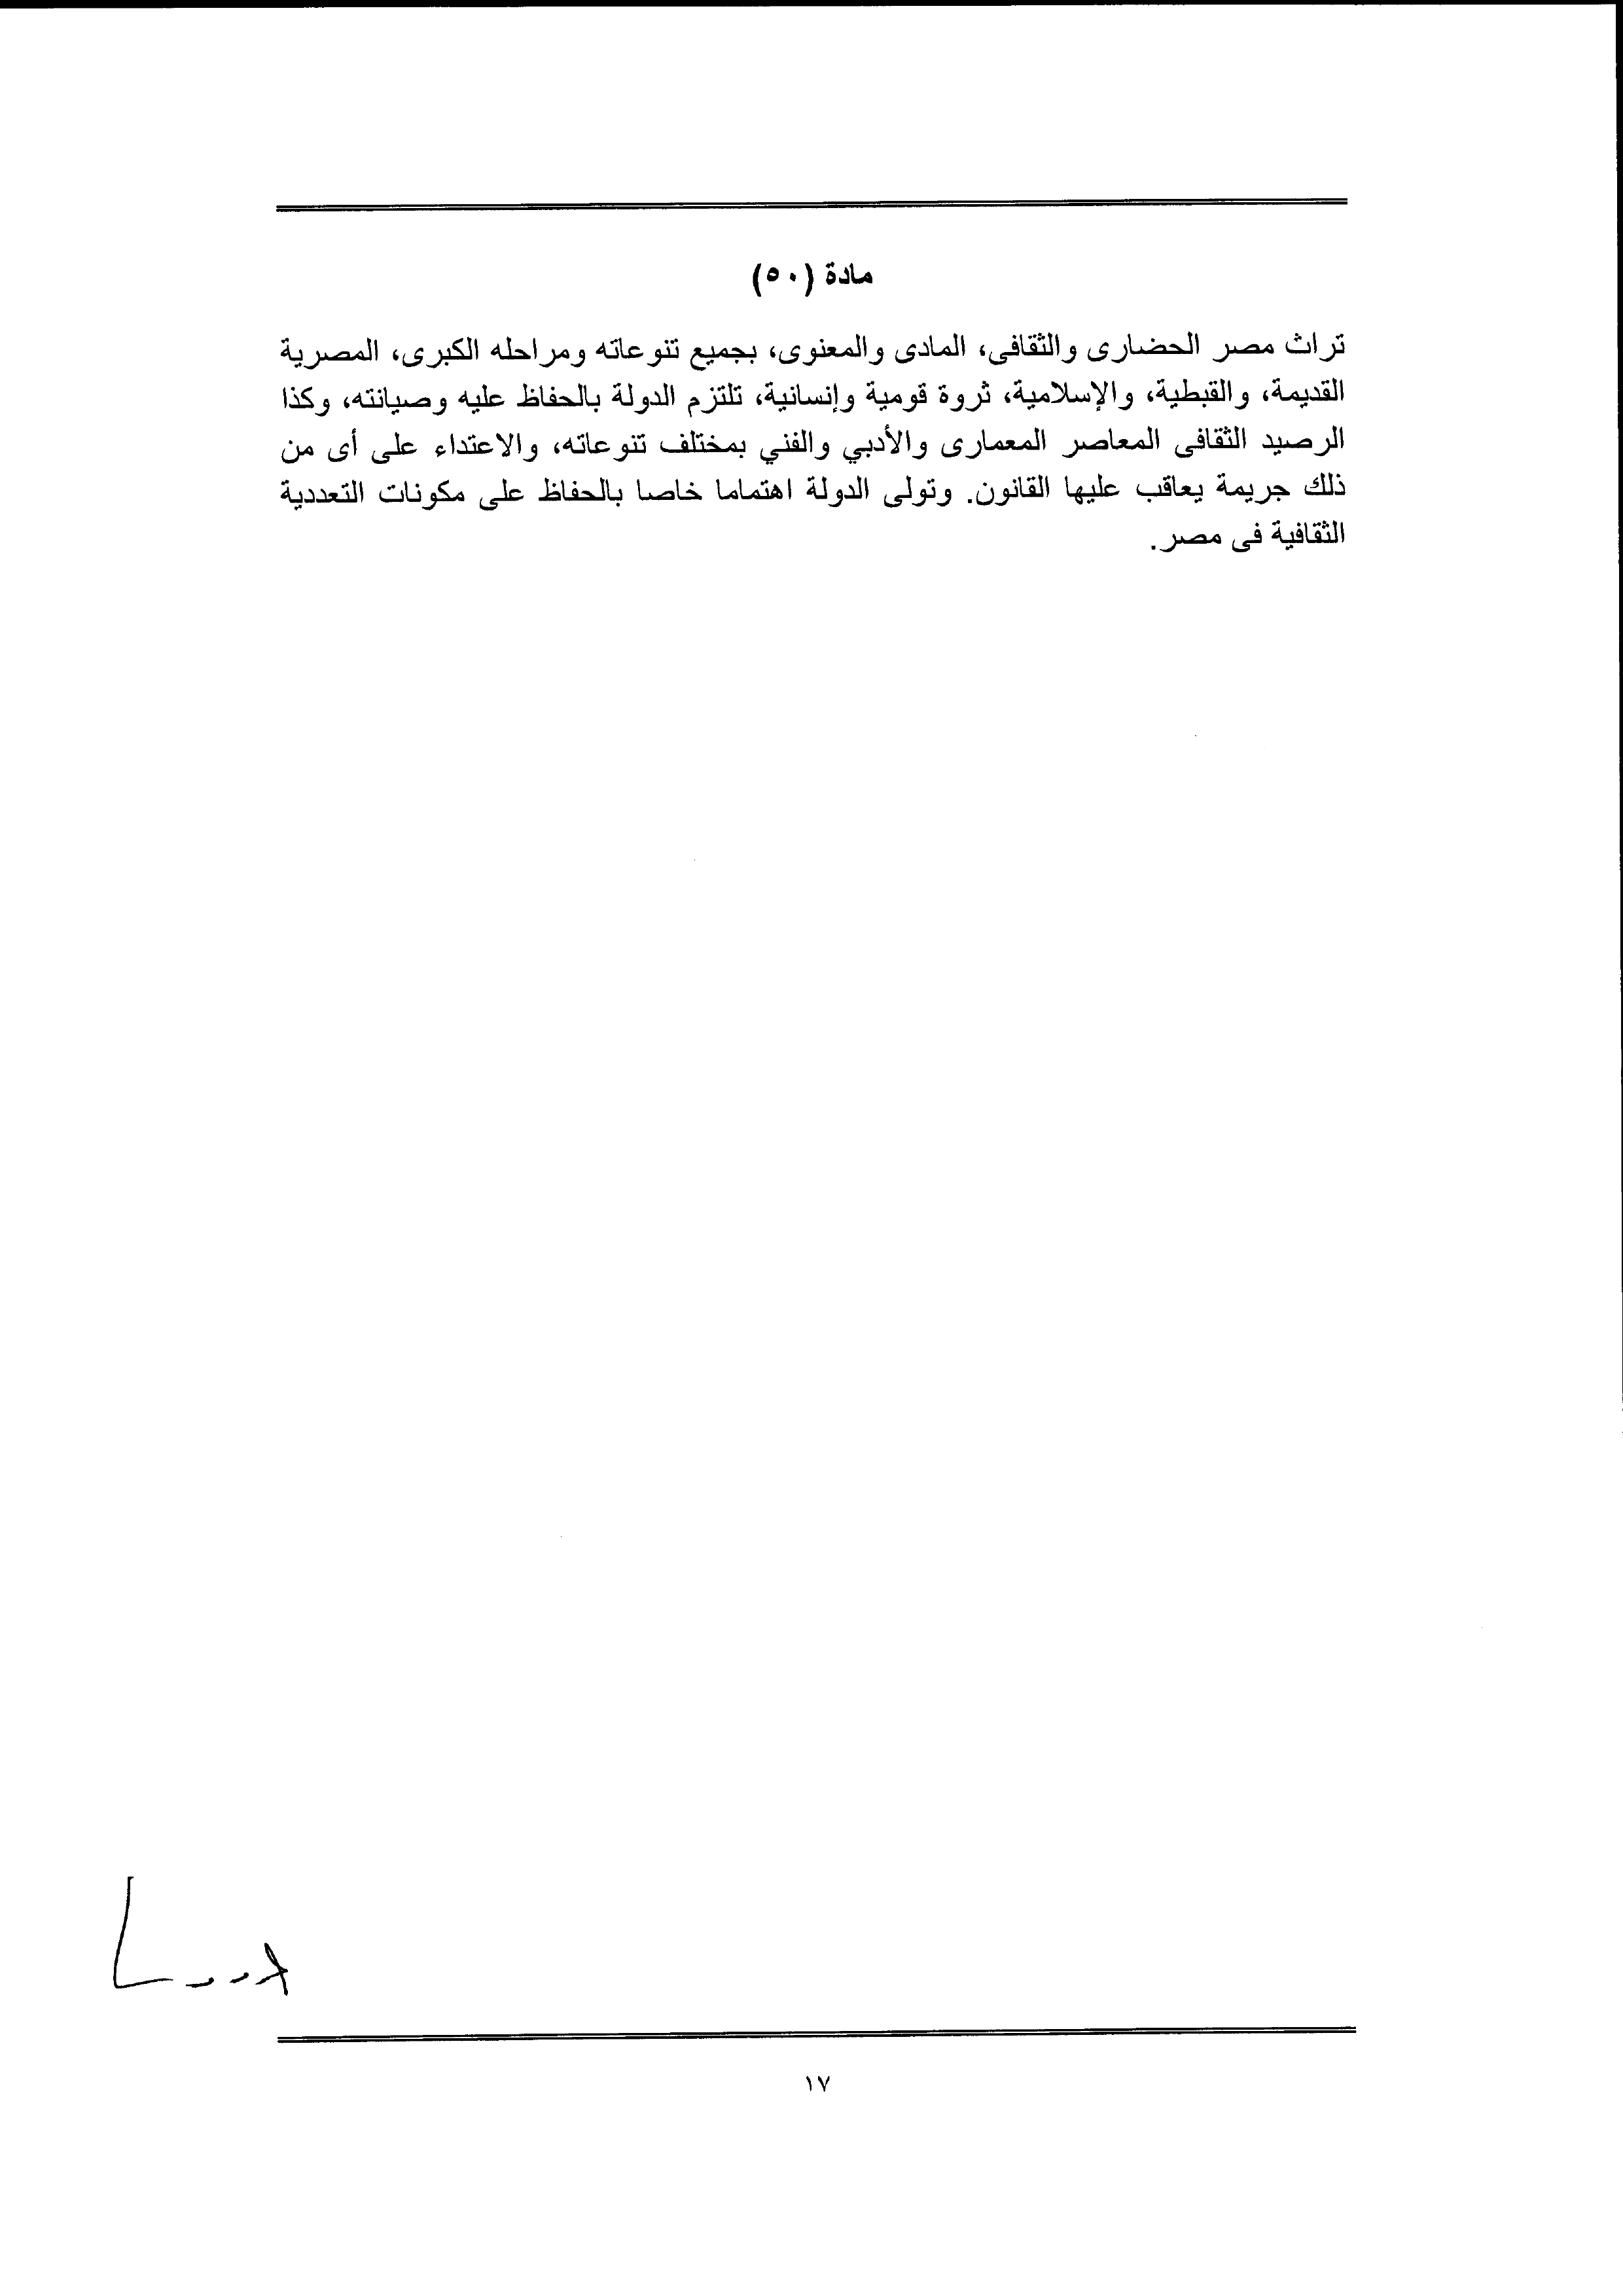 مادة (٥٠)
تراث مصر الحضارى والثقافى، المادى والمعنوى، بجميع تنوعاته ومراحله الكبرى، المصرية
القديمة، والقبطية، والإسلامية، ثروة قومية وإنسانية، تلتزم الدولة بالحفاظ عليه وصيانته، وكذا
الرصيد الثقافى المعاصر المعمارى والأدبي والفني بمختلف تنوعاته، والاعتداء على أى من
ذلك جريمة يعاقب عليها القانون. وتولى الدولة اهتماما خاصا بالحفاظ على مكونات التعددية
الثقافية فى مصر.
١٧